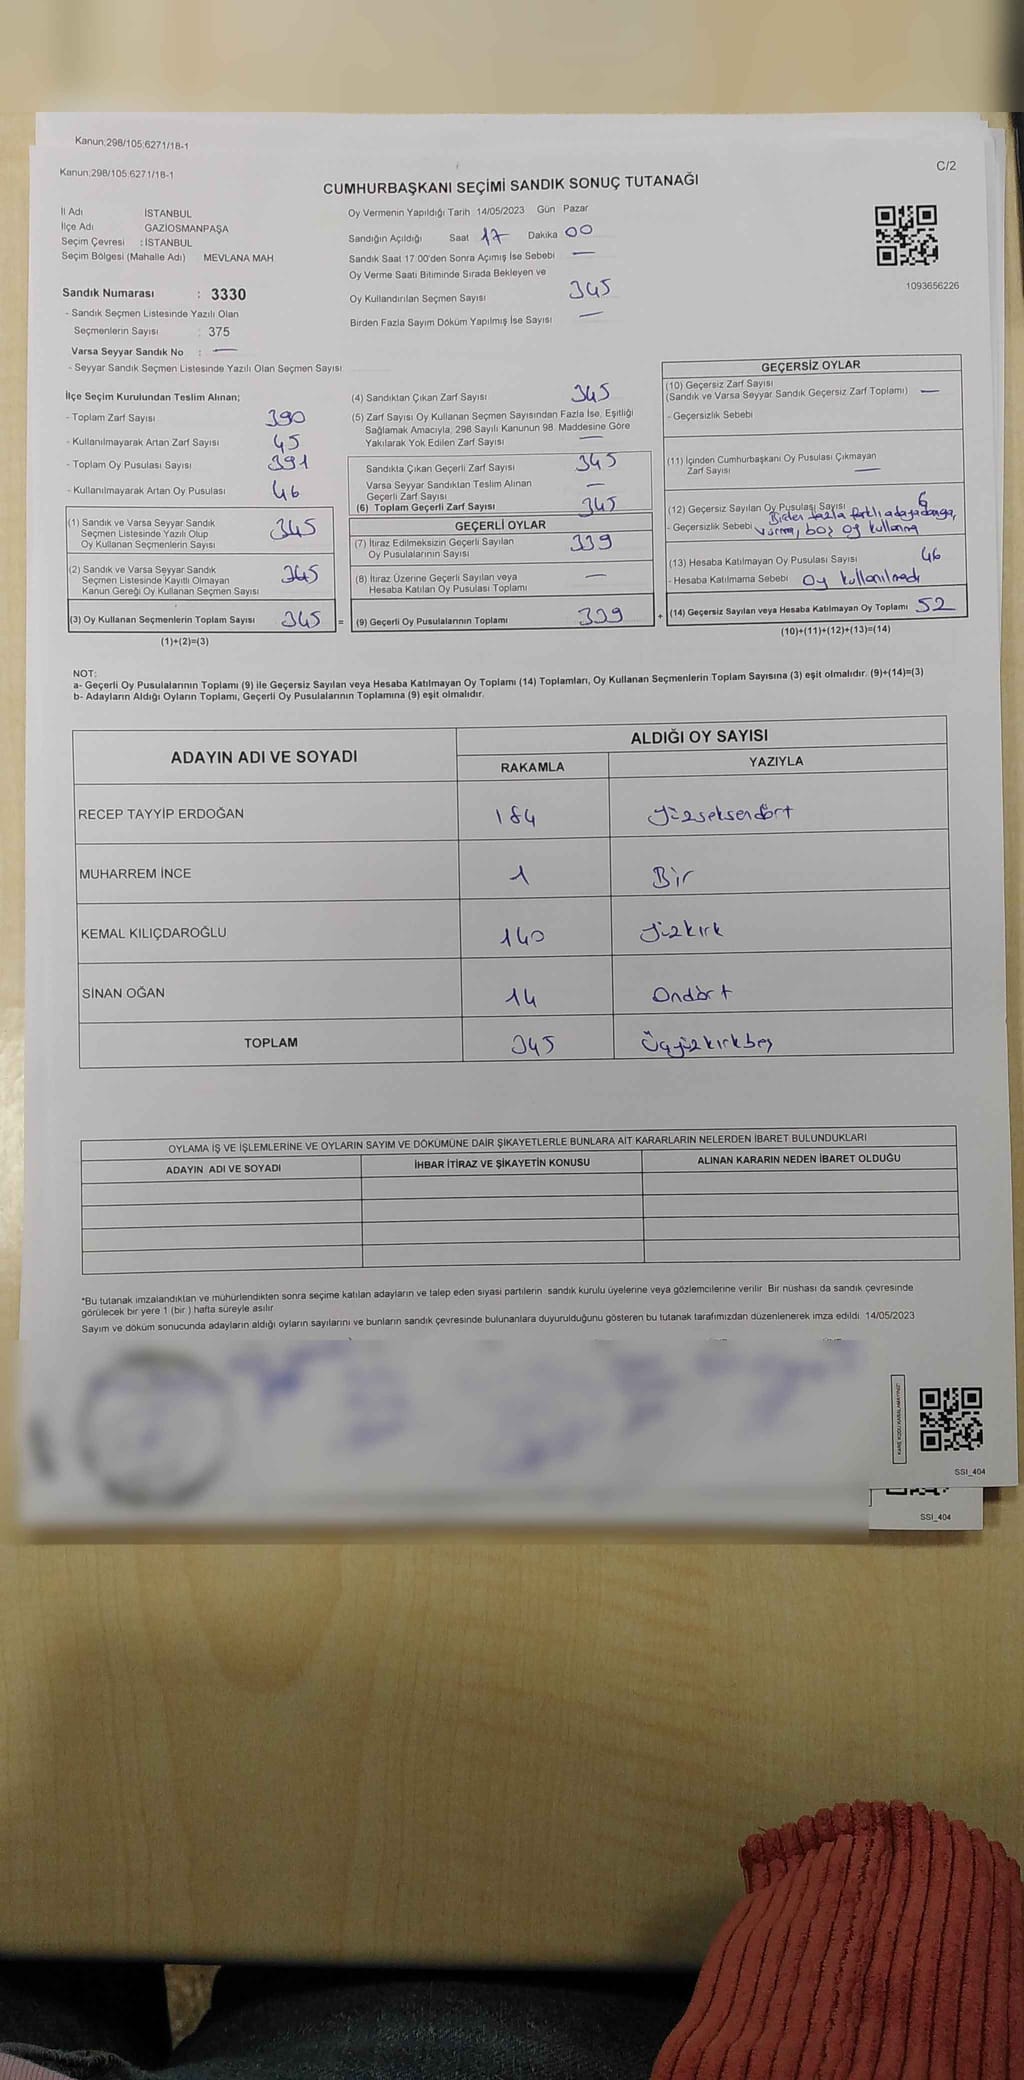 Kanun;298/105;6271/18-1
Kanun;298/105;6271/18-1
C/2
CUMHURBAŞKANI SEÇİMİ SANDIK SONUÇ TUTANAĞI
İl Adı İSTANBUL
İlçe Adı GAZİOSMANPAŞA
Seçim Çevresi : İSTANBUL
Seçim Bölgesi (Mahalle Adı) MEVLANA MAH
Sandık Numarası : 3330
- Sandık Seçmen Listesinde Yazılı Olan
Seçmenlerin Sayısı : 375
Varsa Seyyar Sandık No : —
- Seyyar Sandık Seçmen Listesinde Yazılı Olan Seçmen Sayısı
Oy Vermenin Yapıldığı Tarih 14/05/2023 Gün Pazar
Sandığın Açıldığı Saat 17 Dakika 00
Sandık Saat 17:00'den Sonra Açımış İse Sebebi —
Oy Verme Saati Bitiminde Sırada Bekleyen ve
Oy Kullandırılan Seçmen Sayısı 345
Birden Fazla Sayım Döküm Yapılmış İse Sayısı —
1093656226
İlçe Seçim Kurulundan Teslim Alınan;
- Toplam Zarf Sayısı 390
- Kullanılmayarak Artan Zarf Sayısı 45
- Toplam Oy Pusulası Sayısı 391
- Kullanılmayarak Artan Oy Pusulası 46
(1) Sandık ve Varsa Seyyar Sandık
Seçmen Listesinde Yazılı Olup
Oy Kullanan Seçmenlerin Sayısı 345
(2) Sandık ve Varsa Seyyar Sandık
Seçmen Listesinde Kayıtlı Olmayan
Kanun Gereği Oy Kullanan Seçmen Sayısı 345
(3) Oy Kullanan Seçmenlerin Toplam Sayısı 345 =
(1)+(2)=(3)
(4) Sandıktan Çıkan Zarf Sayısı 345
(5) Zarf Sayısı Oy Kullanan Seçmen Sayısından Fazla İse, Eşitliği
Sağlamak Amacıyla, 298 Sayılı Kanunun 98. Maddesine Göre
Yakılarak Yok Edilen Zarf Sayısı —
Sandıkta Çıkan Geçerli Zarf Sayısı 345
Varsa Seyyar Sandıktan Teslim Alınan
Geçerli Zarf Sayısı —
(6) Toplam Geçerli Zarf Sayısı 345
GEÇERLİ OYLAR
(7) İtiraz Edilmeksizin Geçerli Sayılan
Oy Pusulalarının Sayısı 339
(8) İtiraz Üzerine Geçerli Sayılan veya
Hesaba Katılan Oy Pusulası Toplamı —
(9) Geçerli Oy Pusulalarının Toplamı 339 +
GEÇERSİZ OYLAR
(10) Geçersiz Zarf Sayısı
(Sandık ve Varsa Seyyar Sandık Geçersiz Zarf Toplamı) —
- Geçersizlik Sebebi
(11) İçinden Cumhurbaşkanı Oy Pusulası Çıkmayan
Zarf Sayısı —
(12) Geçersiz Sayılan Oy Pusulası Sayısı 6
- Geçersizlik Sebebi Birden fazla farklı adaya damga,
vurma, boş oy kullanma
(13) Hesaba Katılmayan Oy Pusulası Sayısı 46
- Hesaba Katılmama Sebebi Oy kullanılmadı
(14) Geçersiz Sayılan veya Hesaba Katılmayan Oy Toplamı 52
(10)+(11)+(12)+(13)=(14)
NOT:
a- Geçerli Oy Pusulalarının Toplamı (9) ile Geçersiz Sayılan veya Hesaba Katılmayan Oy Toplamı (14) Toplamları, Oy Kullanan Seçmenlerin Toplam Sayısına (3) eşit olmalıdır. (9)+(14)=(3)
b- Adayların Aldığı Oyların Toplamı, Geçerli Oy Pusulalarının Toplamına (9) eşit olmalıdır.
ADAYIN ADI VE SOYADI ALDIĞI OY SAYISI
RAKAMLA YAZIYLA
RECEP TAYYİP ERDOĞAN 184 yüzseksendört
MUHARREM İNCE 1 Bir
KEMAL KILIÇDAROĞLU 140 yüzkırk
SİNAN OĞAN 14 Ondört
TOPLAM 345 Üçyüzkırkbeş
OYLAMA İŞ VE İŞLEMLERİNE VE OYLARIN SAYIM VE DÖKÜMÜNE DAİR ŞİKAYETLERLE BUNLARA AİT KARARLARIN NELERDEN İBARET BULUNDUKLARI
ADAYIN ADI VE SOYADI İHBAR İTİRAZ VE ŞİKAYETİN KONUSU ALINAN KARARIN NEDEN İBARET OLDUĞU
*Bu tutanak imzalandıktan ve mühürlendikten sonra seçime katılan adayların ve talep eden siyasi partilerin sandık kurulu üyelerine veya gözlemcilerine verilir. Bir nüshası da sandık çevresinde
görülecek bir yere 1 (bir ) hafta süreyle asılır
Sayım ve döküm sonucunda adayların aldığı oyların sayılarını ve bunların sandık çevresinde bulunanlara duyurulduğunu gösteren bu tutanak tarafımızdan düzenlenerek imza edildi. 14/05/2023
SSI_404
SSI_404